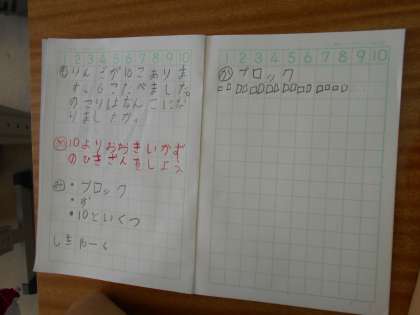 2 3 4 5 6 7 8 9 10
りんごが10こありま
こたべました。
のこりはなんこにな
りましたか。
10よりおおきいかず
のひきざんをしよう
み ・ブロック
・ず
・10といくつ
しき
1 2 3 4 5 6 7 8 9 10
か ブロック